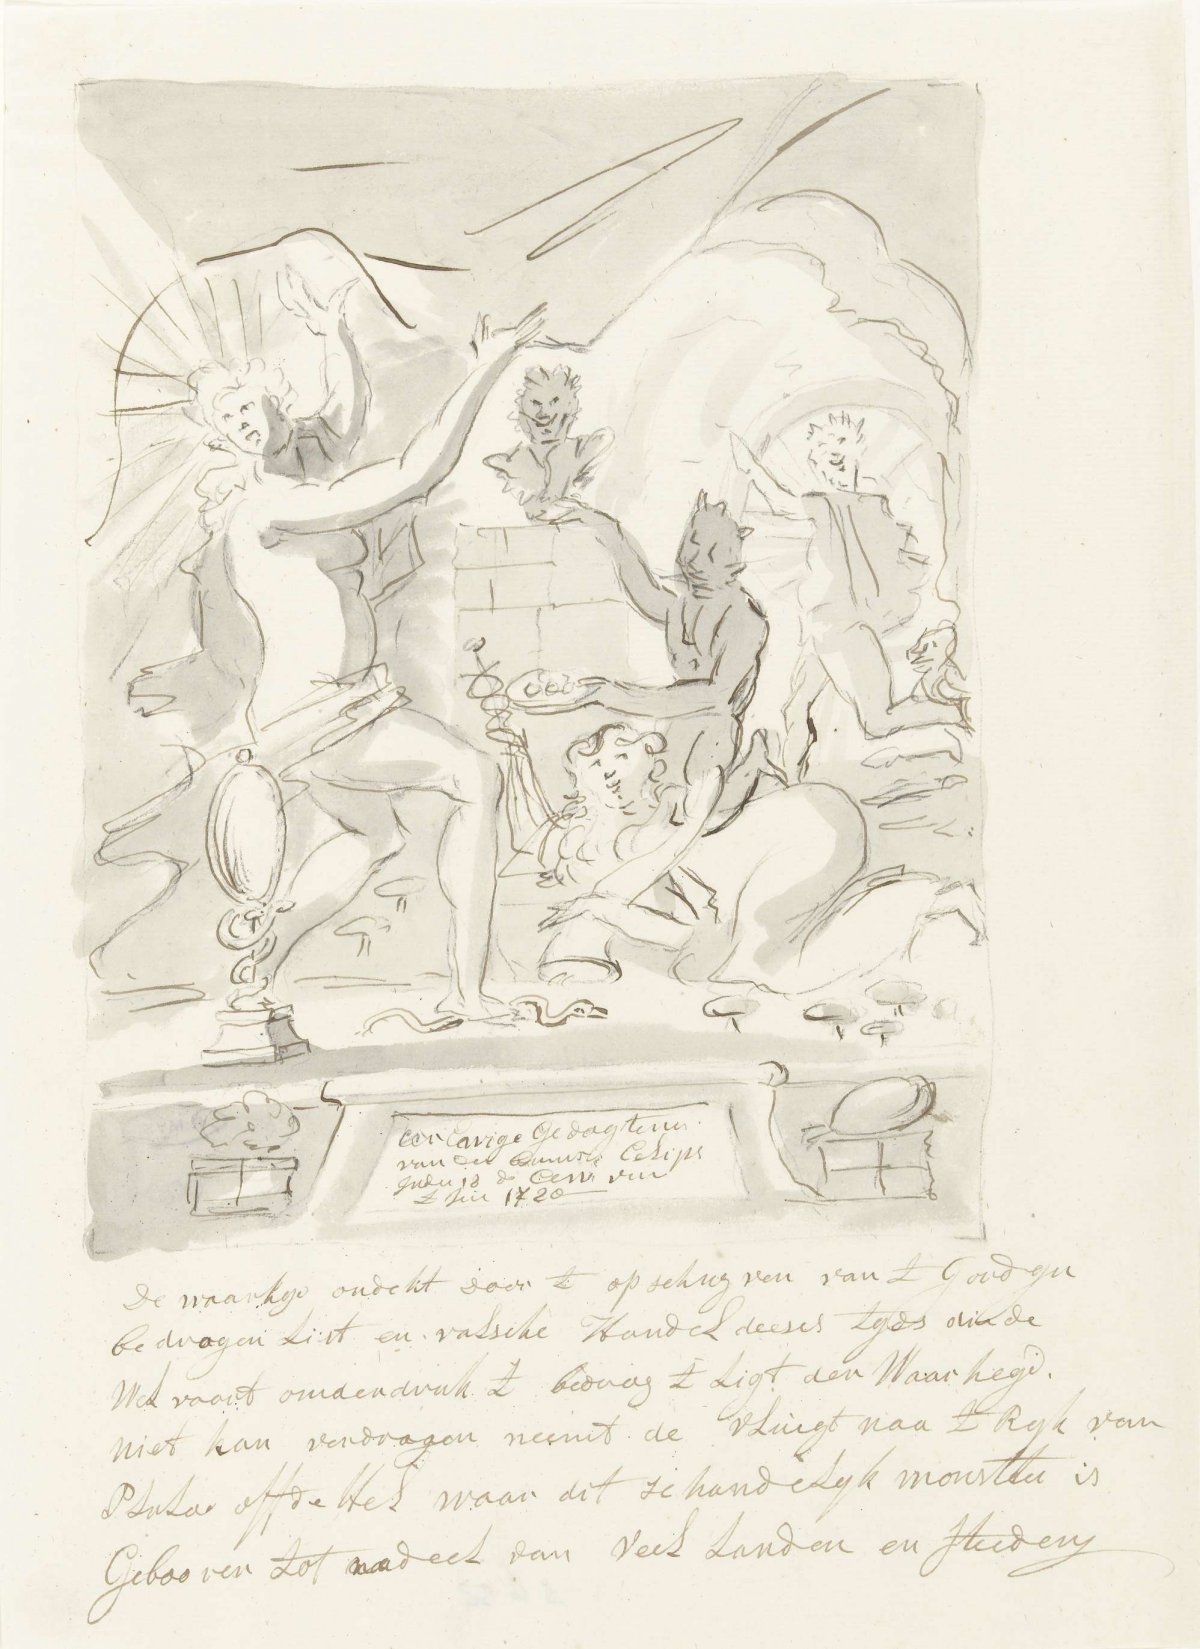 eeuwige Gedagtenis
van den
1720
De waarhyd ondekt door t op schuyven van t Gordyn
bedrogen List en valsche Handel deeses tyds die de
Welvaart omderdruk t bedrog t Ligt der Waarheyd.
niet kan verdragen neemt de vlugt naa t Ryk van
Pluto off de Hel waar dit schandelyk monster is
Gebooren tot nadeel van veel Landen en Steeden